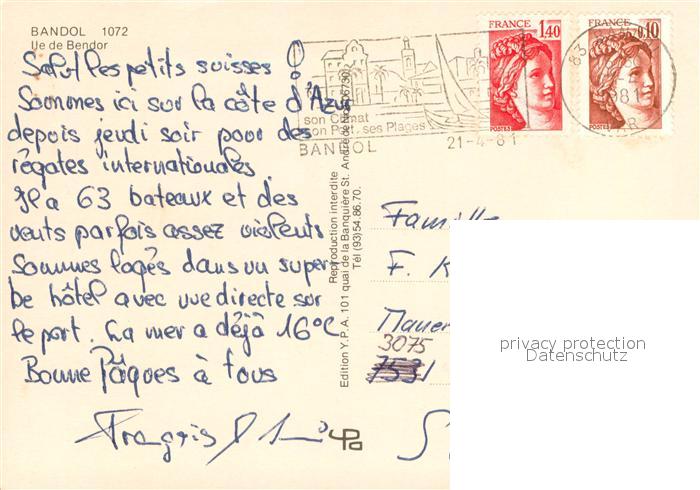 BANDOL 1072
Ile de Bendor
Salut les petits suisses !
Sommes ici sur la côte d'Azur
depuis jeudi soir pour des
régates internationales.
Il a 63 bateaux et des
vents parfois assez violents
Sommes logés dans un super
be hôtel avec vue directe sur
le port. La mer a déjà 16°C
Bonne Pâques à tous
François
FRANCE
1,40
POSTES
FRANCE
0,10
POSTES
83
VAR
son Climat
son Port, ses Plages
BANDOL
21-4-81
Reproduction interdite
Edition Y.P.A. 101 quai de la Banquière St. André de Nice 06730
Tél (93) 54.86.70.
Famille
F. K
3075
7531
privacy protection
Datenschutz